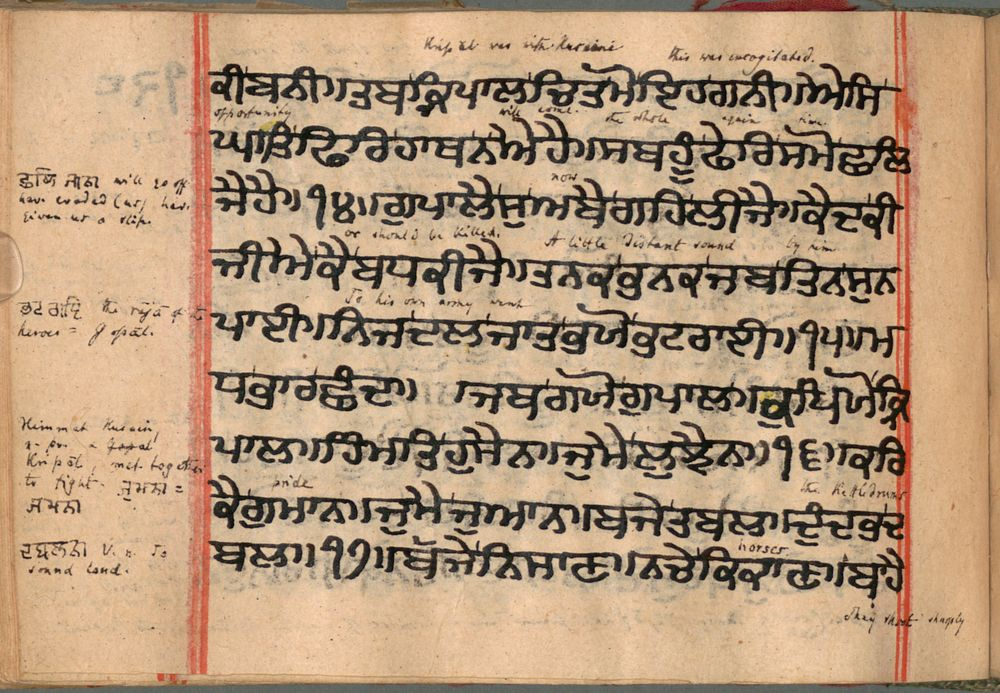 Kripal was with Husaini
this was excogitated.
ਕੀਬਨੀ॥ਤਬਕ੍ਰਿਪਾਲਚਿਤਮੋਇਹਗਨੀ॥ਐਸਿ
opportunity will come. the whole again time.
ਘਾਤਿਫਿਰਿਹਾਥਨਐਹੈ॥ਸਬਹੂੰਫੇਰਿਸਮੋਛਲਿ
now
ਜੈਹੈ॥੧੪॥ਗੁਪਾਲੈਸੁਅਬੈਗਹਿਲੀਜੈ॥ਕੈਦਕੀ
or should be killed. A little distant sound by him
ਜੀਐਕੈਬਧਕੀਜੈ॥ਤਨਕਭਨਕਜਬਤਿਨਸੁਨ
To his own army went
ਪਾਈ॥ਨਿਜਦਲਜਾਤਭਯੋਭਟਰਾਈ॥੧੫॥ਮ
ਧੁਭਾਰਛੰਦ॥ ॥ਜਬਗਯੋਗੁਪਾਲ॥ਕੁਪਿਯੋਕ੍ਰਿ
ਪਾਲ॥ਹਿੰਮਤਿਹੁਸੈਨ॥ਜੁਮੈਲੁਝੈਨ॥੧੬॥ਕਰਿ
pride the kettledrums
ਕੈਗੁਮਾਨ॥ਜੁਮੈਜੁਆਨ॥ਬਜੇਤਬਲ॥ਦੁੰਦਭਦ
horses
ਬਲ॥੧੭॥ਬੱਜੇਨਿਸਾਣ॥ਨਚੇਕਿਕਾਣ॥ਬਹੈ
They shoot sharply
ਛਲਿ ਜਾਨਾ will go off
have evaded (us) have
given us a slip.
ਭਟ ਰਾਇ the rājā of
heroes = Gopāl.
Himmat Husain,
n. pr. a
Kripāl, met together
to fight. ਜੁਮਨਾ =
ਜਮਨਾ
ਦੁਬਲਨਾ v. n. To
sound loud.